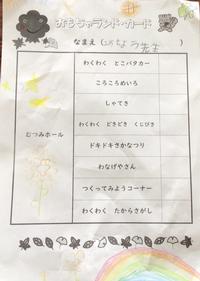 おもちゃランド・カード
なまえ（ひなの先生）
むつみホール
わくわく とこバタカー
ころころめいろ
しゃてき
わくわく どきどき くじびき
ドキドキさかなつり
わなげやさん
つくってみようコーナー
わくわく たからさがし